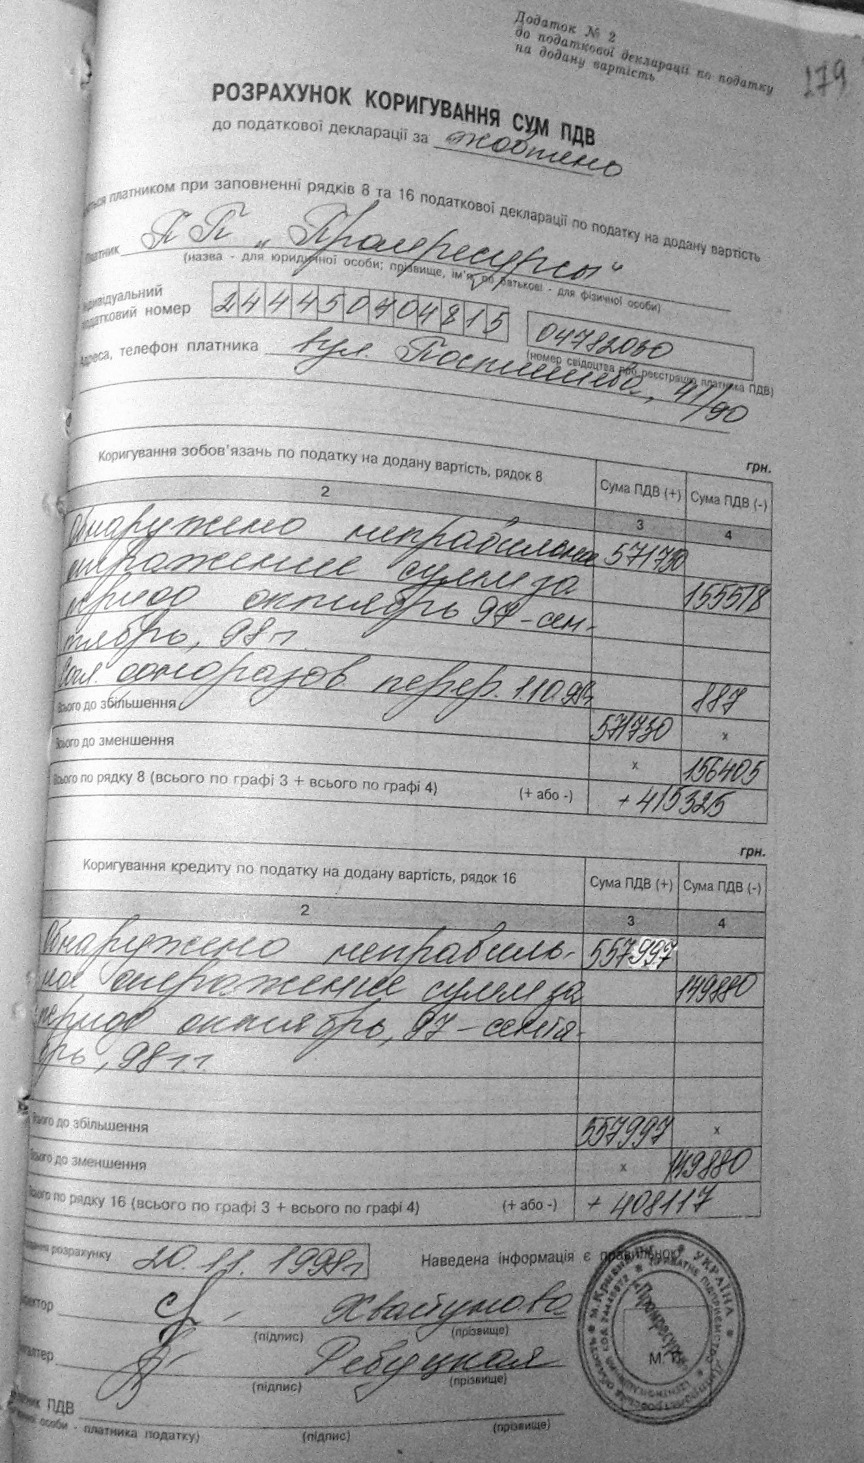 Додаток № 2
до податкової декларації по податку
на додану вартість
179
РОЗРАХУНОК КОРИГУВАННЯ СУМ ПДВ
до податкової декларації за
платником при заповненні рядків 8 та 16 податкової декларації по податку на додану вартість
ПП „Промресурсы“
(назва - для юридичної особи; прізвище, ім'я, по батькові - для фізичної особи)
Індивідуальний
податковий номер 244450704815 04782030
(номер свідоцтва про реєстрацію платника ПДВ)
Адреса, телефон платника вул. Постишева, 41/90
грн.
Коригування зобов'язань по податку на додану вартість, рядок 8 Сума ПДВ (+) Сума ПДВ (-)
2 3 4
Обнаружено неправильное 571730
отражение сумм за 155518
период октябрь 97-сен-
тябрь, 98 г.
одноразов. перер. 1.10.98 887
Всього до збільшення 571730 х
Всього до зменшення х 156405
Всього по рядку 8 (всього по графі 3 + всього по графі 4) (+ або -) +415325
грн.
Коригування кредиту по податку на додану вартість, рядок 16 Сума ПДВ (+) Сума ПДВ (-)
2 3 4
Обнаружено неправиль- 557997
отражение сумм за 149880
период октябрь, 97-сентя-
брь, 98 гг.
Всього до збільшення 557997 х
Всього до зменшення х 149880
Всього по рядку 16 (всього по графі 3 + всього по графі 4) (+ або -) +408117
розрахунку 20.11.1998г Наведена інформація є правильною
(підпис) (прізвище)
Ребуцкая
(підпис) (прізвище)
М. П.
ПДВ
особи - платника податку) (підпис) (прізвище)
УКРАЇНА
"Промресурси"